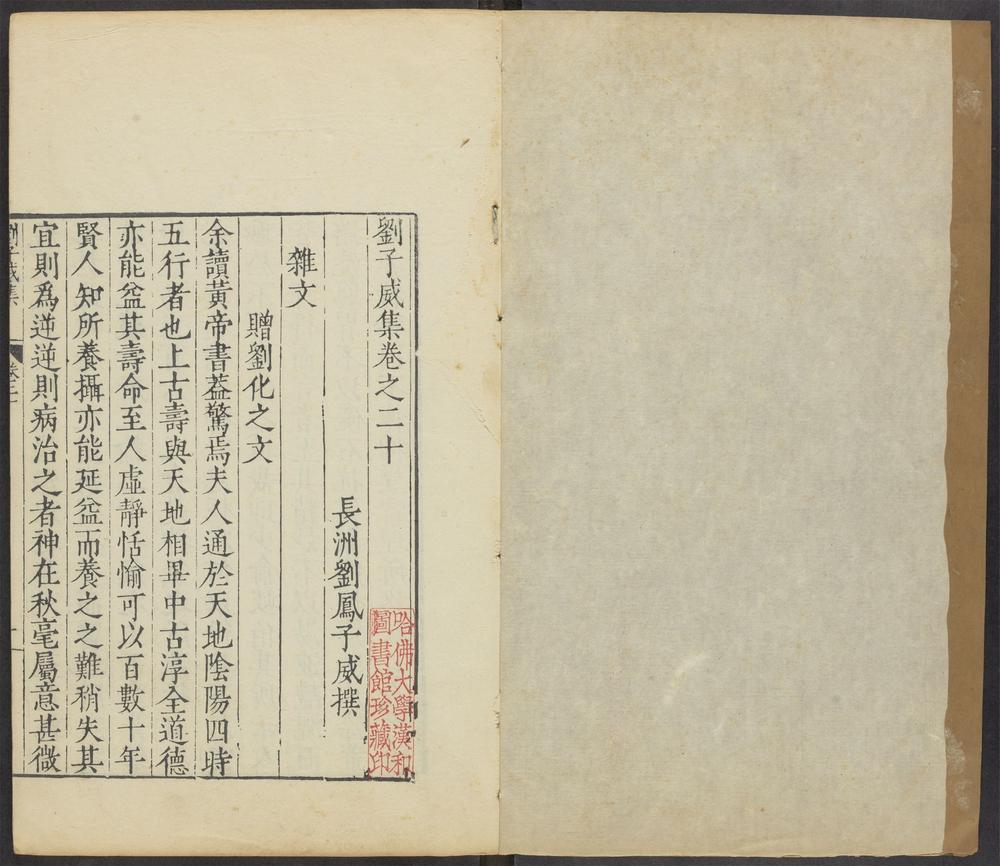 劉子威集卷之二十
長洲劉鳳子威撰
雜文
贈劉化之文
余讀黃帝書葢驚焉夫人通於天地陰陽四時
五行者也上古壽與天地相畢中古淳全道德
亦能益其壽命至人虛靜恬愉可以百數十年
賢人知所養攝亦能延益而養之之難稍失其
宜則爲逆逆則病治之者神在秋毫屬意甚微
劉子威集
卷二
哈佛大學漢和
圖書館珍藏印